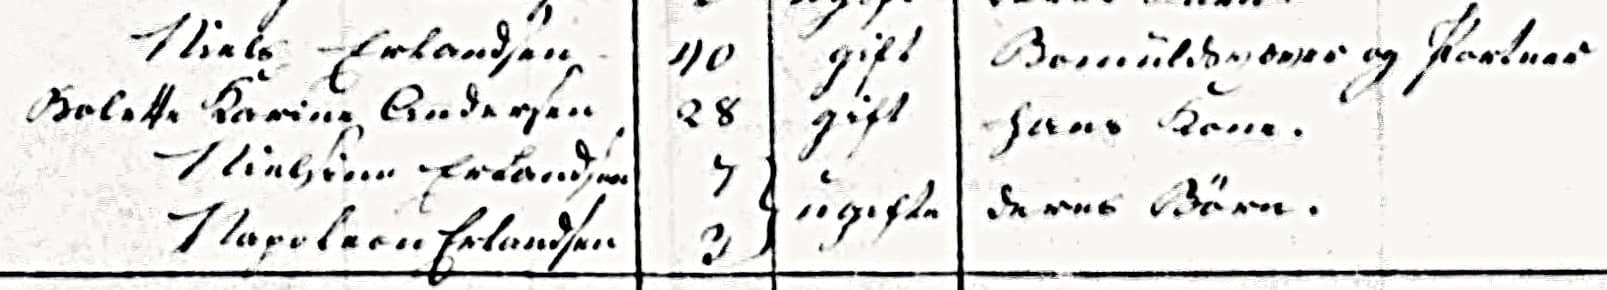 Niels Erlandsen 40 gift Bomüldsvæver og Portner
Bolette Karine Andersen 28 gift hans Kone.
Nielsine Erlandsen 7
ugifte deres Börn.
Napoleon Erlandsen 3